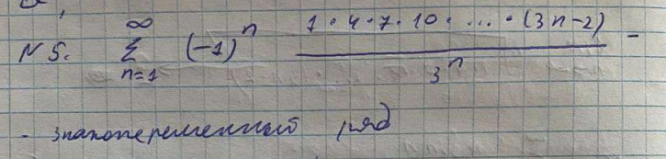 N 5. ∞ ∑ n=1 (-1)^n 1·4·7·10·...·(3n-2) / 3^n -
- знакопеременный ряд